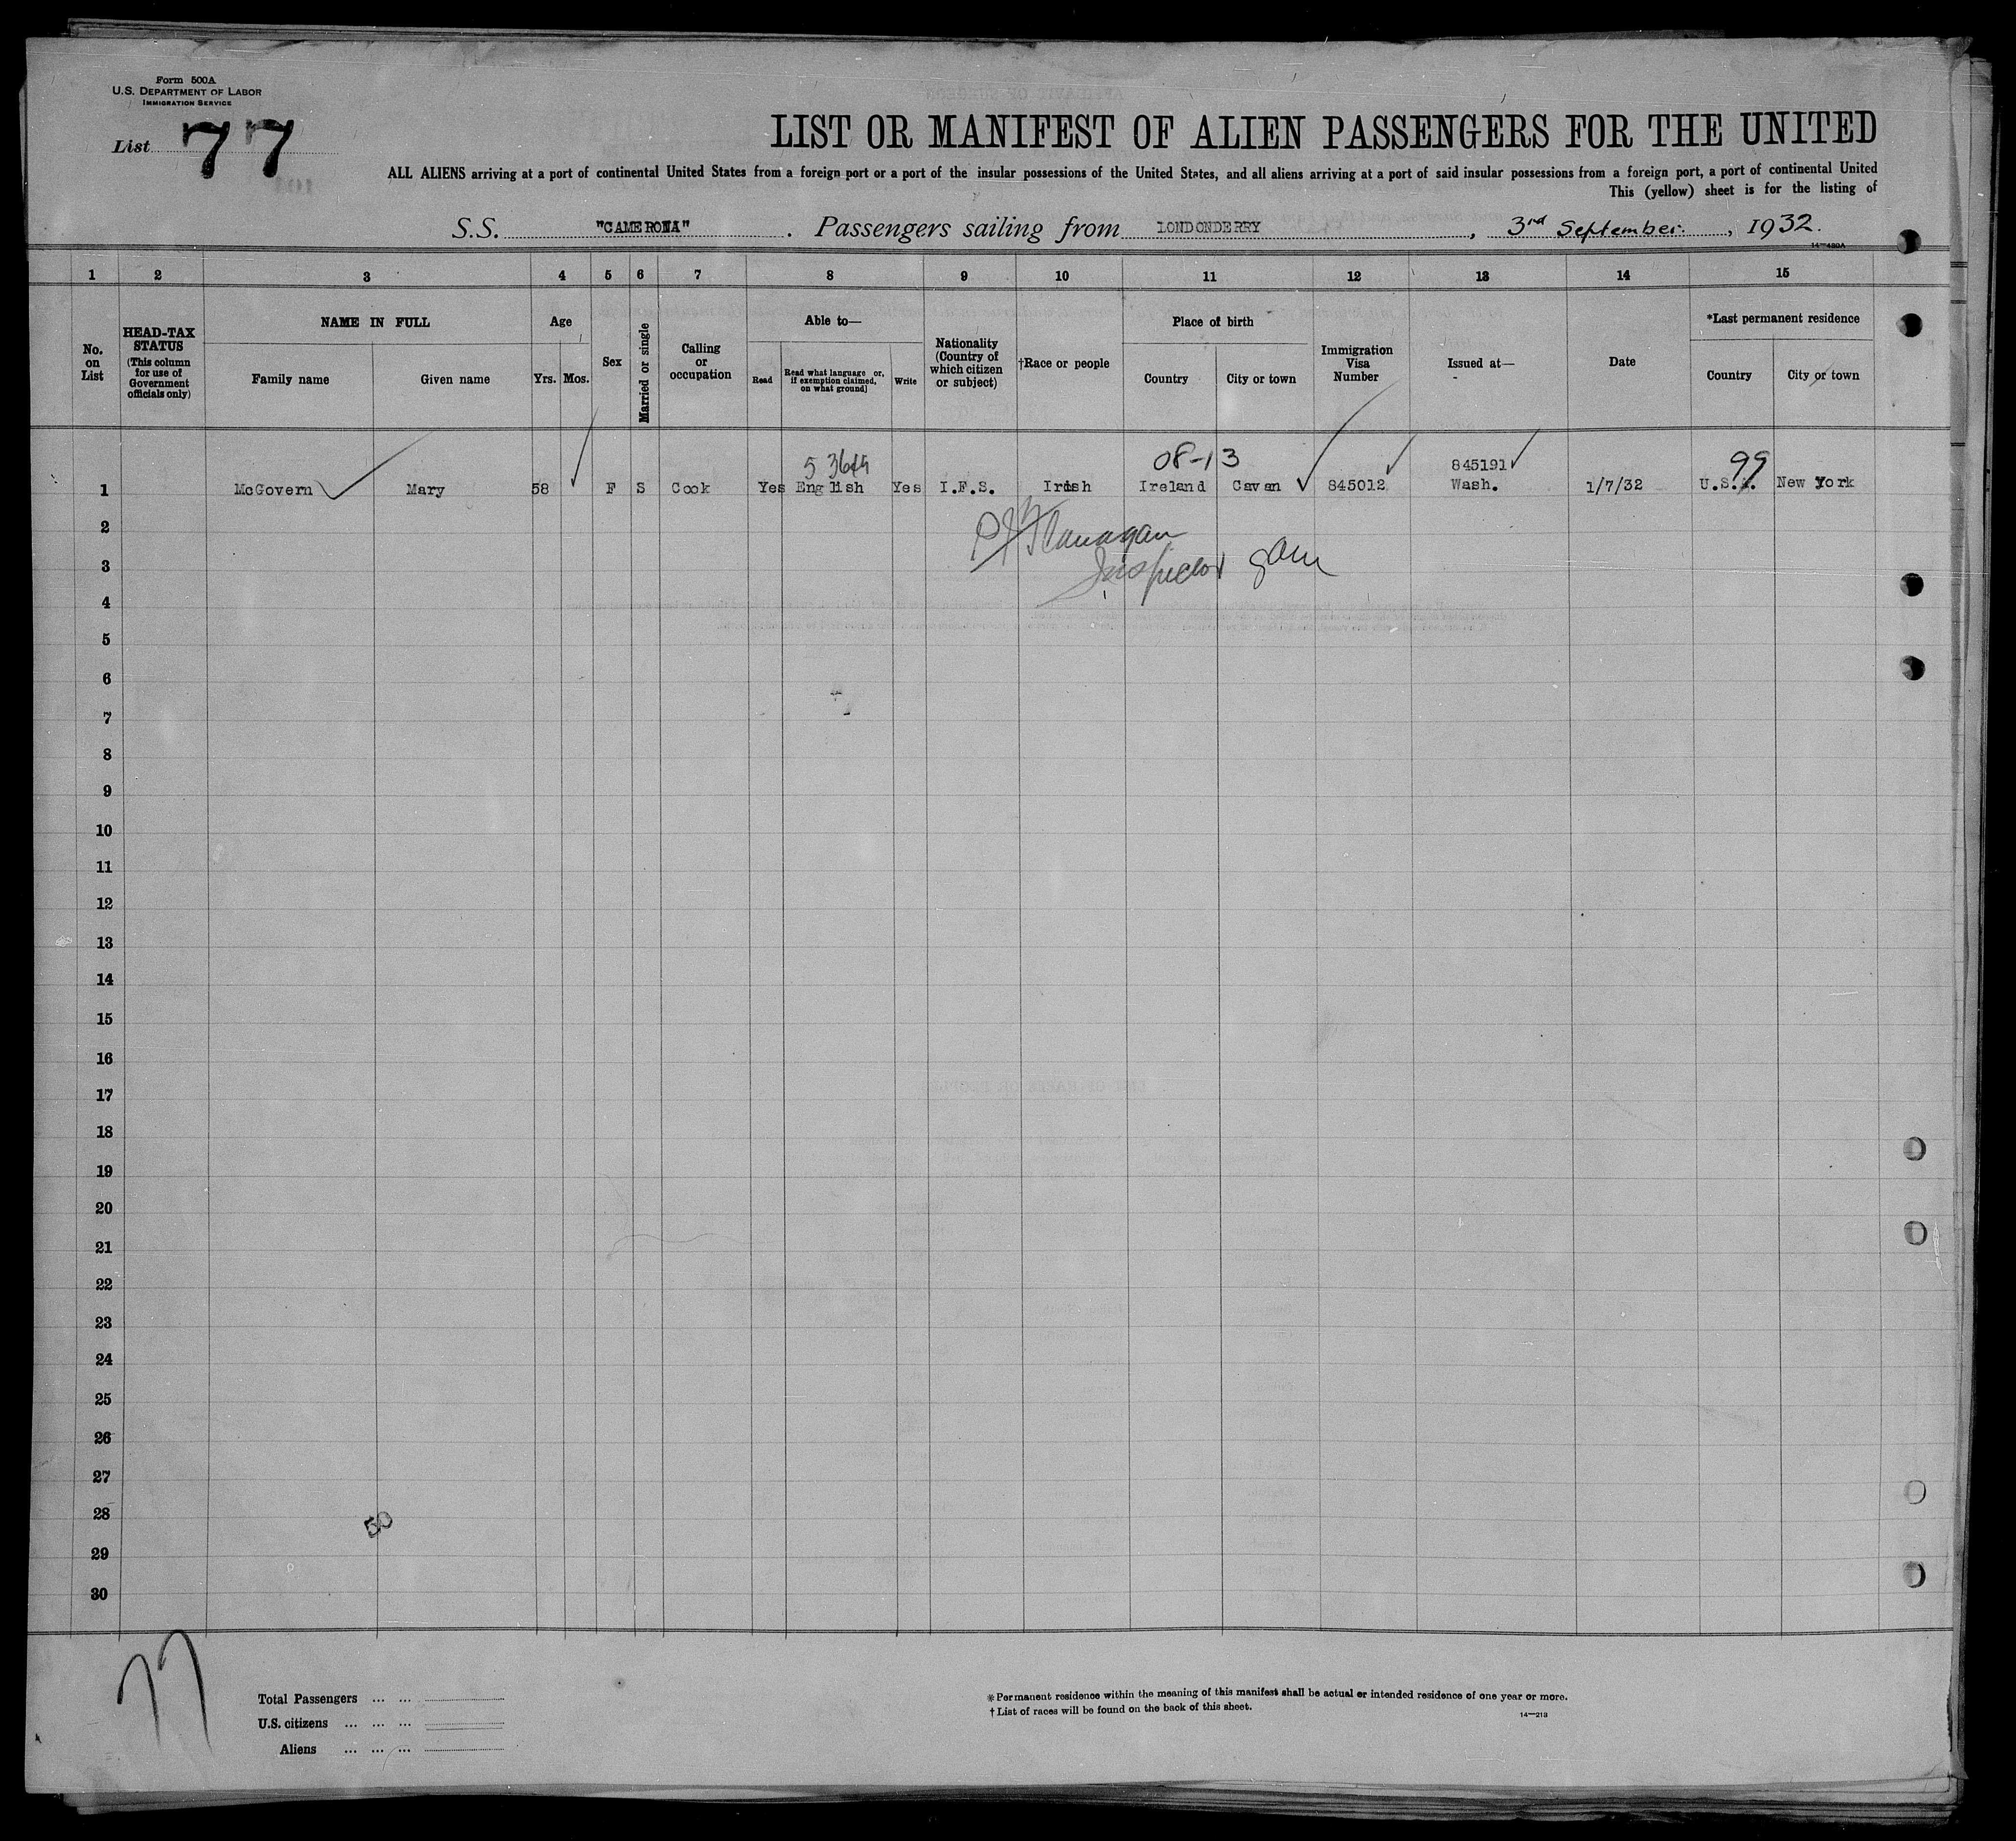 Form 500A
U.S. DEPARTMENT OF LABOR
IMMIGRATION SERVICE
List 77
LIST OR MANIFEST OF ALIEN PASSENGERS FOR THE UNITED
ALL ALIENS arriving at a port of continental United States from a foreign port or a port of the insular possessions of the United States, and all aliens arriving at a port of said insular possessions from a foreign port, a port of continental United
This (yellow) sheet is for the listing of
S.S. "CAMERONIA". Passengers sailing from LONDONDERRY, 3rd September, 1932.
14—480A
1 2 3 4 5 6 7 8 9 10 11 12 13 14 15
No. on List
HEAD-TAX STATUS
(This column for use of Government officials only)
NAME IN FULL
Family name Given name
Age
Yrs. Mos.
Sex
Married or single
Calling or occupation
Able to—
Read
Read what language or, if exemption claimed, on what ground)
Write
Nationality (Country of which citizen or subject)
†Race or people
Place of birth
Country City or town
Immigration Visa Number
Issued at—
Date
*Last permanent residence
Country City or town
08-13 845191 99
1 McGovern Mary 58 F S Cook Yes English Yes I.F.S. Irish Ireland Cavan 845012 Wash. 1/7/32 U.S.A. New York
2
Flanagan
3
Inspector
4
5
6
7
8
9
10
11
12
13
14
15
16
17
18
19
20
21
22
23
24
25
26
27
28
50
29
30
77
Total Passengers ... ...
U.S. citizens ... ... ...
Aliens ... ... ...
*Permanent residence within the meaning of this manifest shall be actual or intended residence of one year or more.
†List of races will be found on the back of this sheet.
14—213